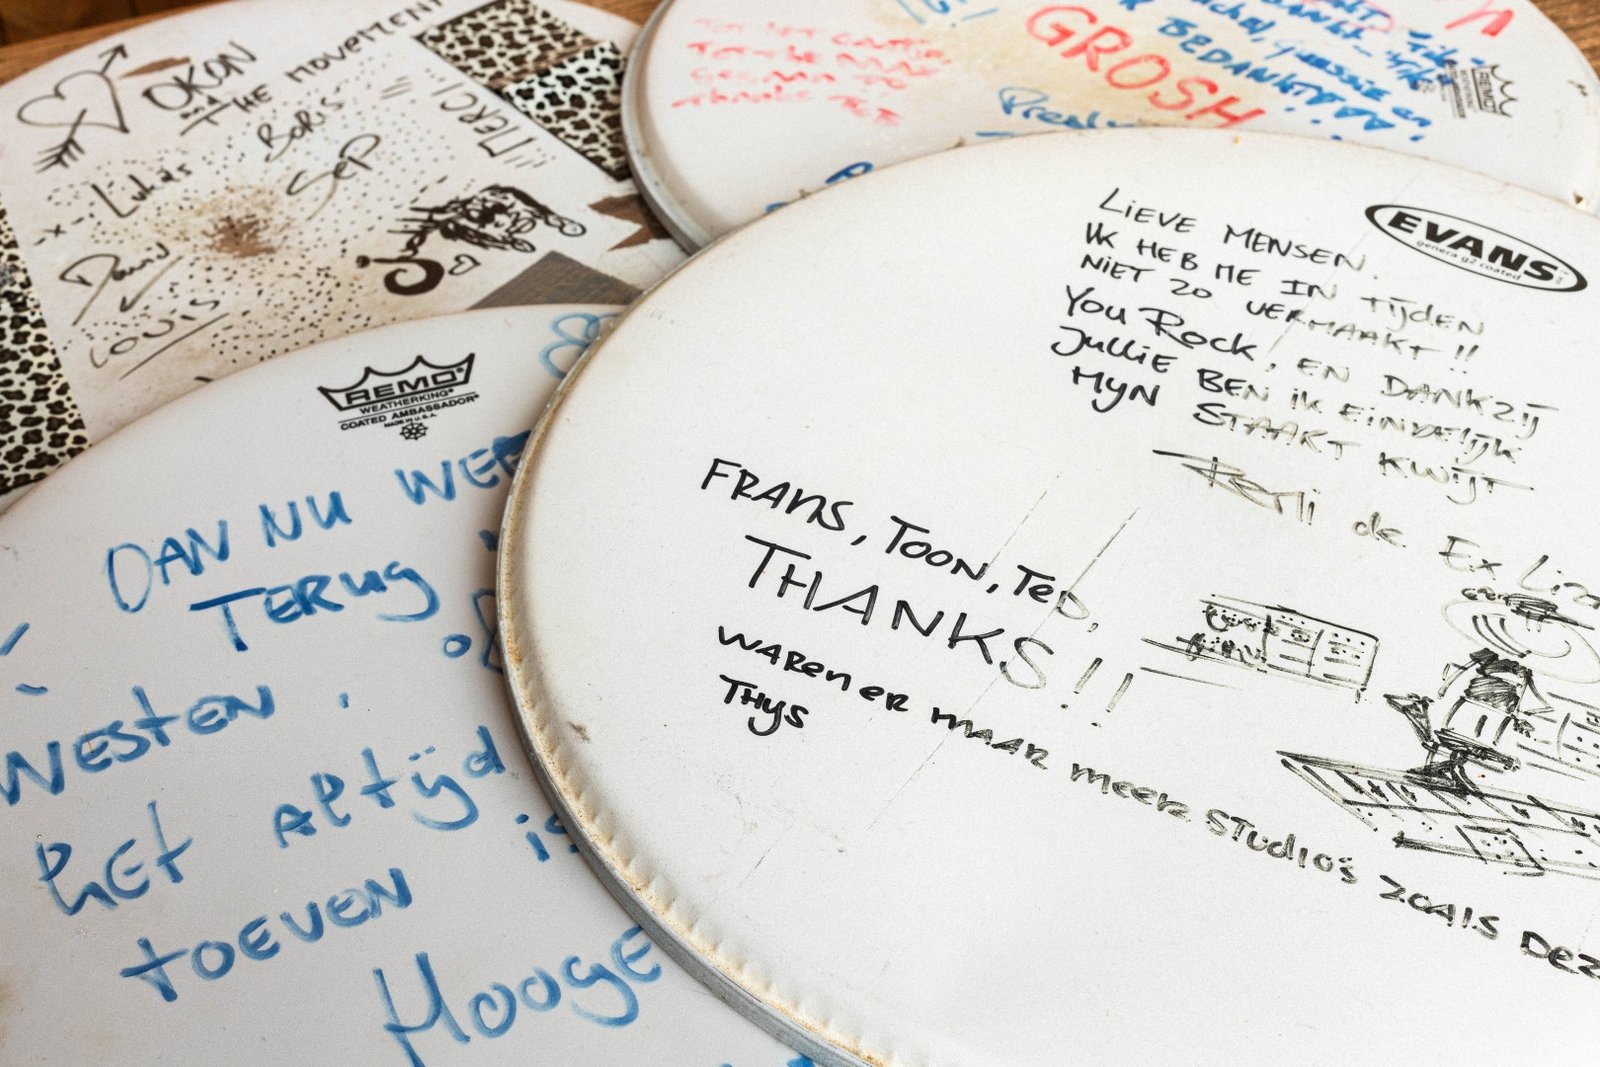 OKON
and
THE MOVEMENT
Lukas
BORIS
SEP
MERCI!!!
David
LOUIS
GROSH
BEDANKT
REMO
EVANS
genera g2 coated
LIEVE MENSEN.
IK HEB ME IN TIJDEN
NIET ZO VERMAAKT!!
YOU ROCK, EN DANKZIJ
JULLIE BEN IK EINDELIJK
MYN STAART KWIJT
Remi de Ex Liza
FRANS, TOON, TED,
THANKS!!
WAREN ER MAAR MEER STUDIO'S ZOALS DEZ
THYS
REMO
WEATHERKING
COATED AMBASSADOR
MADE IN U.S.A.
DAN NU WEE
TERUG
WESTEN,
HET ALTIJD
is
TOEVEN
HOOGE